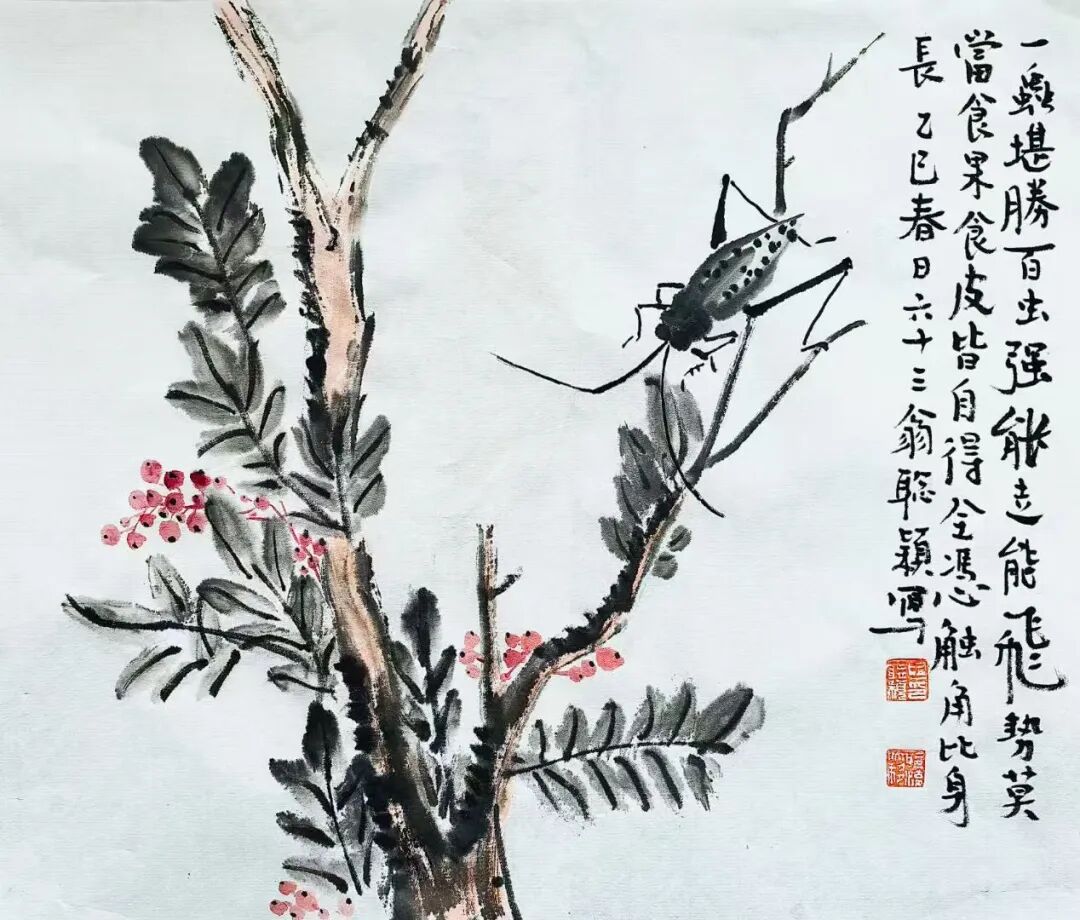 一蟲堪勝百虫强能走能飛勢莫
當食果食皮皆自得全憑触角比身
長 乙巳春日六十三翁聡穎寫